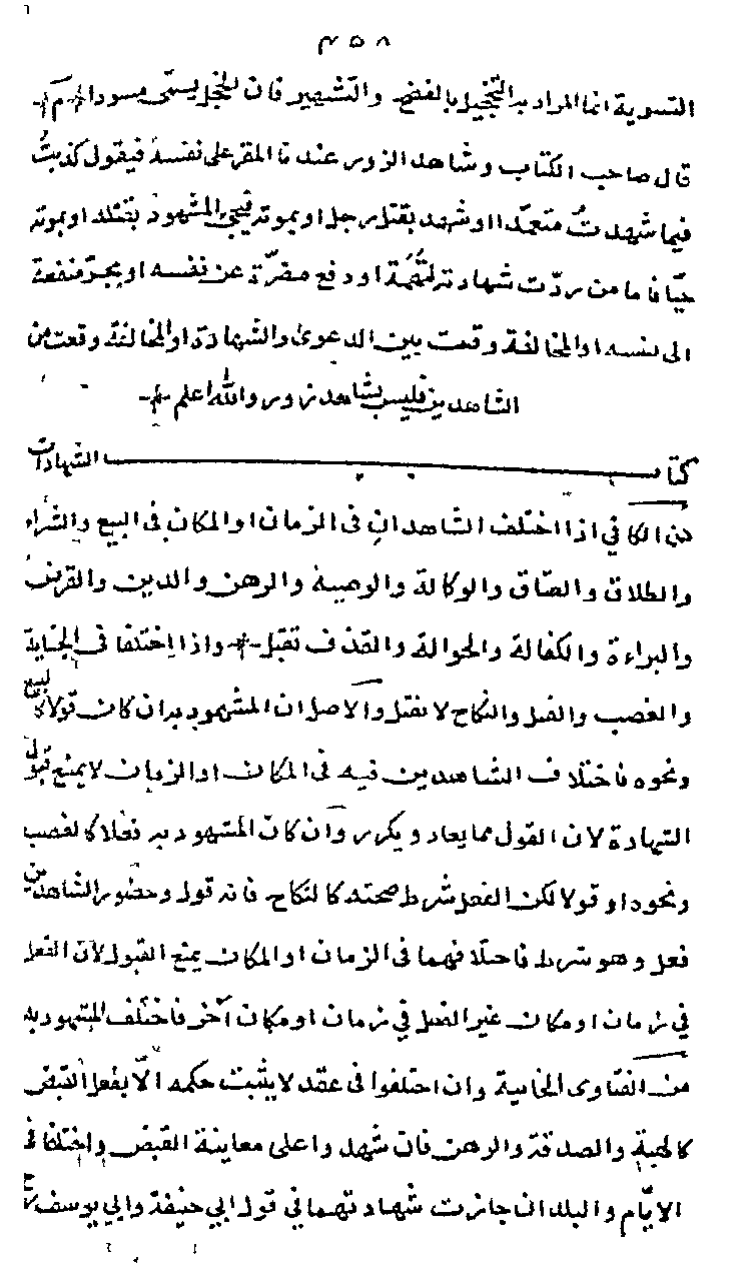 ٤٥٨
التسوية انما المراد به التخجيل بالفضح والتشهير فان الخجل يسمى مسودا م
قال صاحب الكتاب وشاهد الزور عندنا المقر على نفسه فيقول كذبت
فيما شهدت متعمدا او شهد بقتل رجل او بموته فيجئ المشهود بقتله او بموته
حيا فاما من ردت شهادته لتهمة او دفع مضرة عن نفسه او بجر منفعة
الى نفسه او المخالفة وقعت بين الدعوى والشهادة او المخالفة وقعت من
الشاهدين فليس بشاهد زور والله اعلم
كتاب الشهادات
من الكافي اذا اختلف الشاهدان فى الزمان او المكان فى البيع والشراء
والطلاق والعتاق والوكالة والوصية والرهن والدين والقرض
والبراءة والكفالة والحوالة والقذف تقبل واذا اختلفا فى الجناية
والغصب والقتل والنكاح لا تقبل والاصل ان المشهود به ان كان قولا كالبيع
ونحوه فاختلاف الشاهدين فيه فى المكان او الزمان لا يمنع قبول
الشهادة لان القول مما يعاد ويكرر وان كان المشهود به فعلا كالغصب
ونحوه او قولا لكن الفعل شرط صحته كالنكاح فانه قول وحضور الشاهدين
فعل وهو شرط فاختلافهما فى الزمان او المكان يمنع القبول لان الفعل
في زمان او مكان غير الفعل في زمان او مكان آخر فاختلف المشهود به
من الفتاوى الخانية وان اختلفوا فى عقد لا يثبت حكمه الا بفعل القبض
كالهبة والصدقة والرهن فان شهدوا على معاينة القبض واختلفا فى
الايام والبلدان جازت شهادتهما في قول ابي حنيفة وابي يوسف